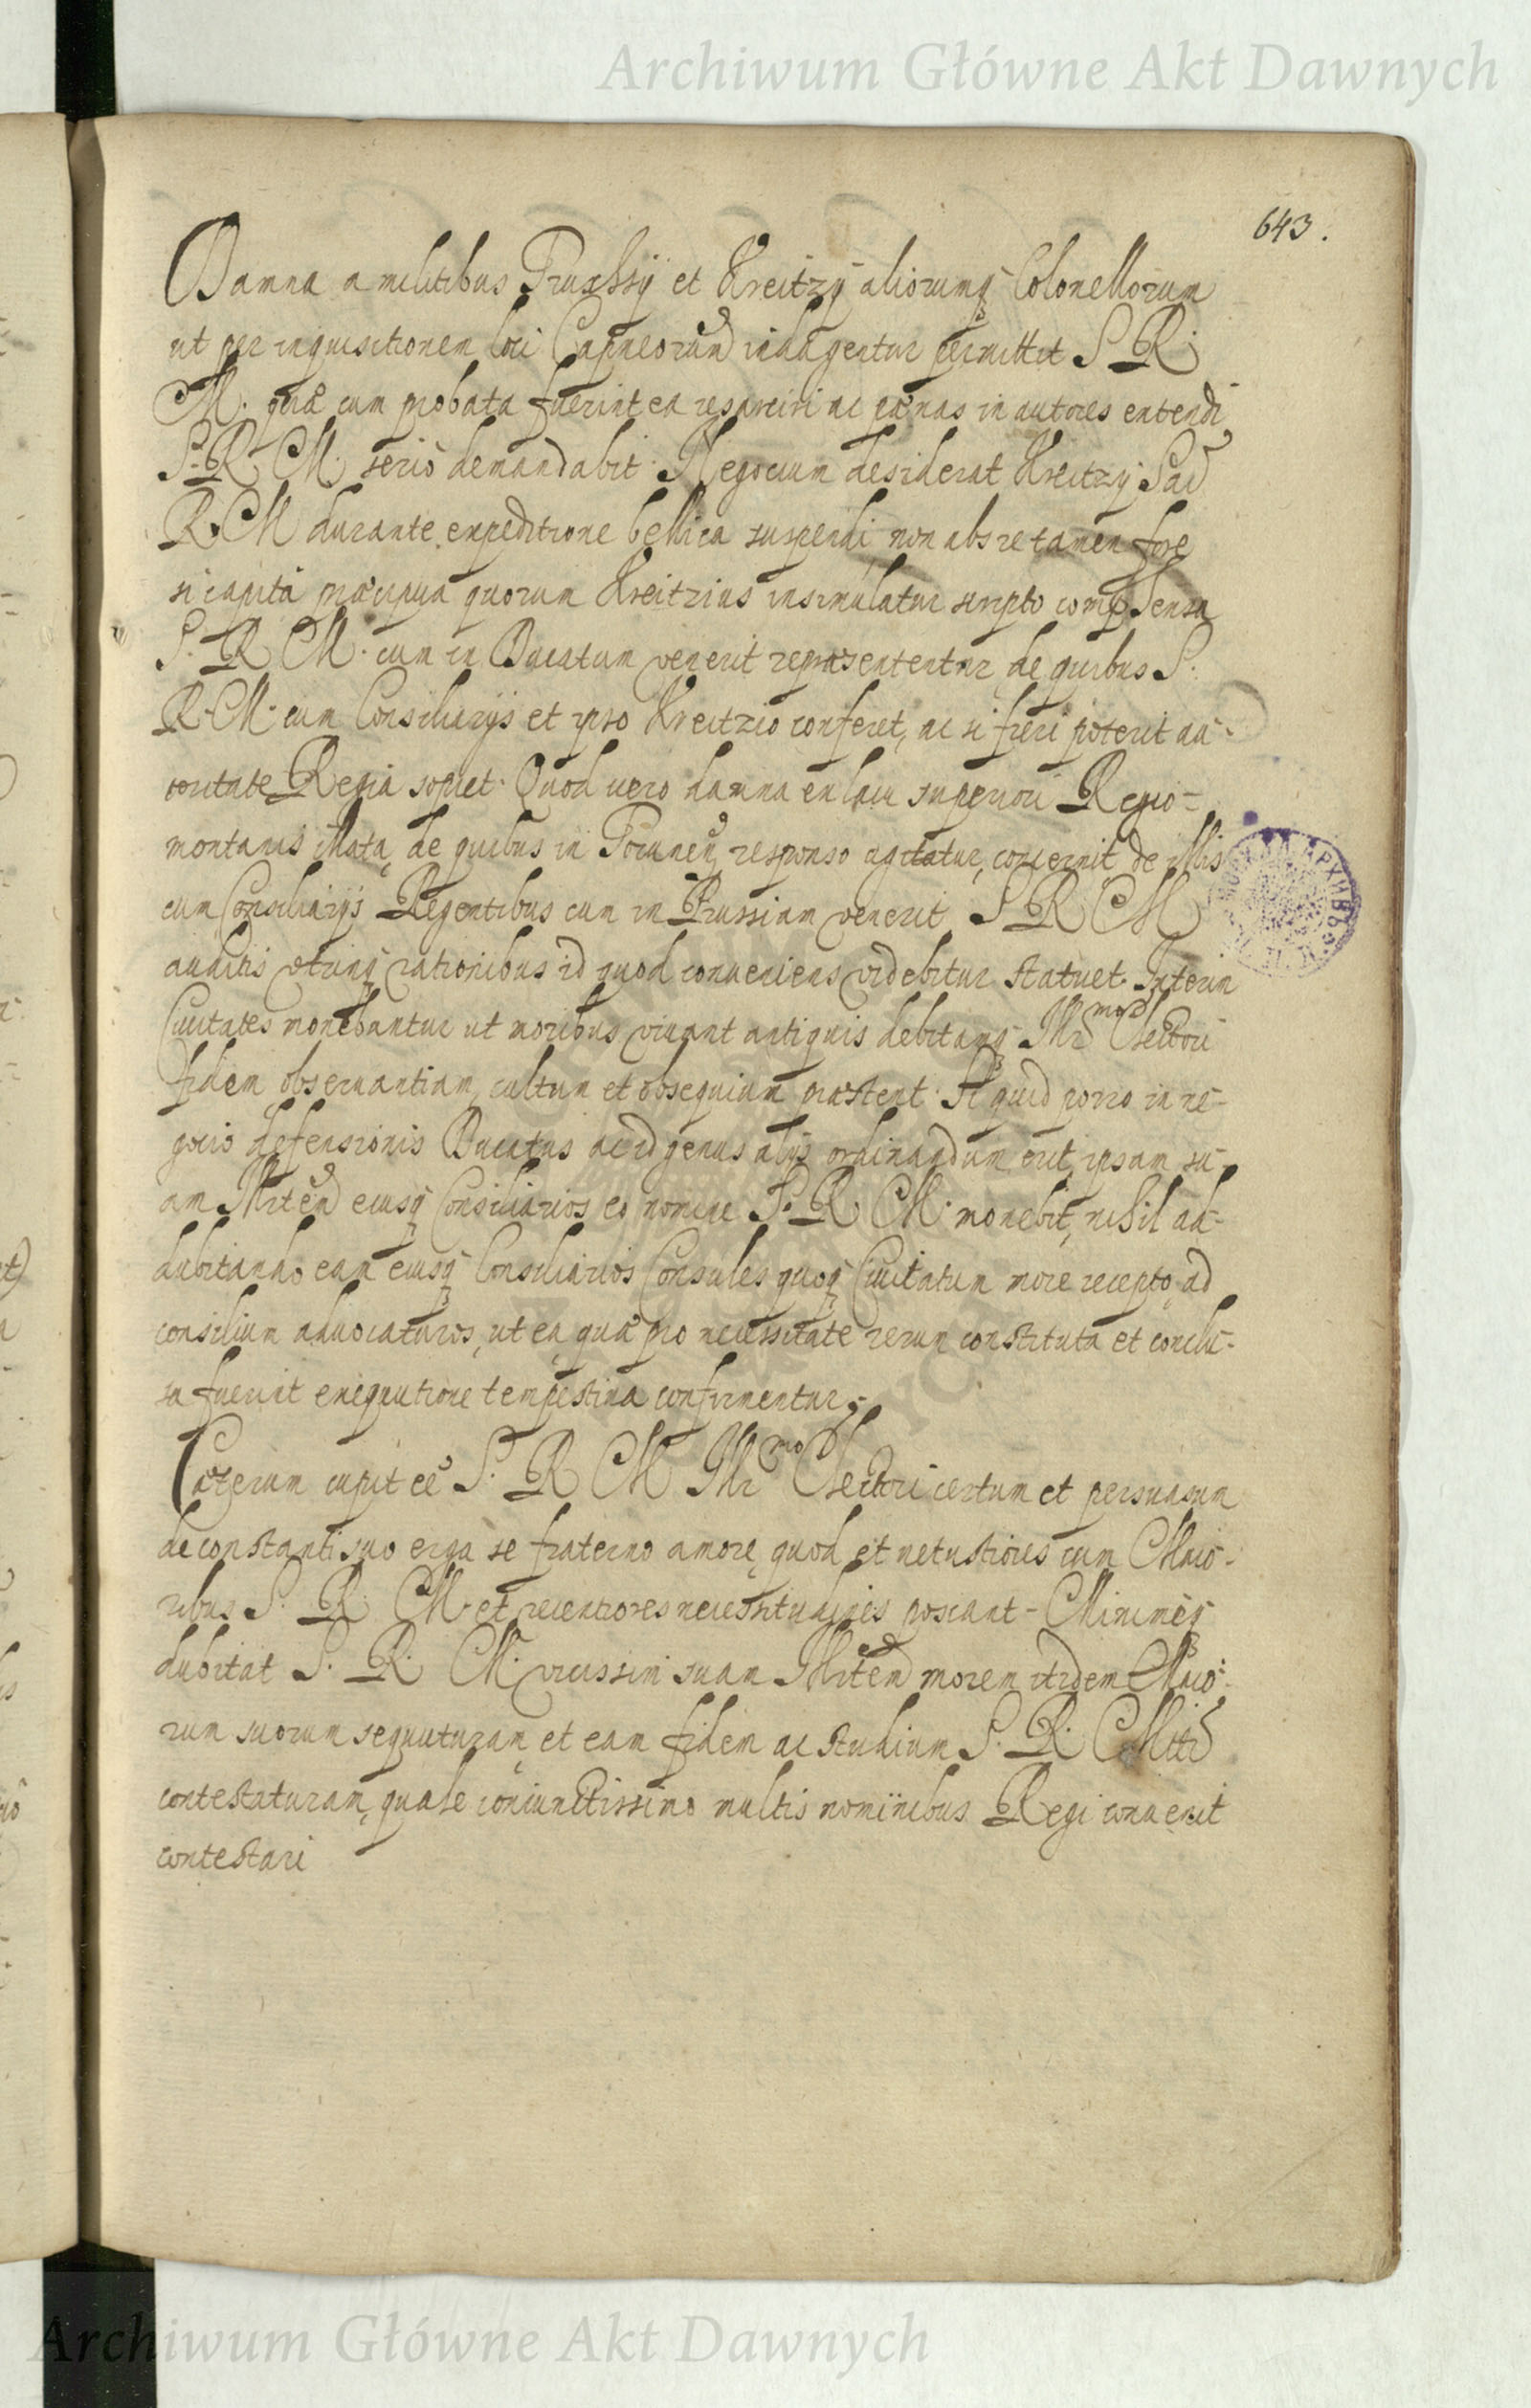 Archiwum Główne Akt Dawnych
643.
Damna a militibus Truchsÿ et Kreitzÿ aliorumq Colonellorum
ut per inquisitionem loci Capneorum indagentur permittit S R
M. quæ cum probata fuerint ea resarciri ac pœnas in autores extendi
S. R. M. serio demandabit. Negocium desiderat Kreitzÿ Sac
R. M durante expeditione bellica suspendi, non abs re tamen fore
si capita præcipua quorum Kreitzius insimulatur scripto comp̄hensa
S. R. M. cum in Ducatum venerit repræsententur, de quibus S.
R. M. cum Consiliarijs et ipso Kreitzio conferet, ac si fieri poterit au-
toritate Regia sopiet. Quod uero damna ex lacu superiori Regio-
montanis illata, de quibus in Torunen responso agitatur, concernit, de illis
cum Consiliarijs Regentibus cum in Prussiam venerit S R M
auditis utrinq rationibus id quod conueniens videbitur statuet. Interim
Ciuitates monebantur ut moribus viuant antiquis debitamq Illr mo Electori
fidem obseruantiam, cultum et obsequium præstent. Si quid porro in ne-
gocio defensionis Ducatus ac id genus alijs ordinandum erit, ipsam su-
am Illten eiusq Consiliarios eo nomine S. R. M. monebit, nihil ad-
dubitando eam eiusq Consiliarios Consules quoq Ciuitatum more recepto ad
consilium aduocaturos, ut ea quæ pro necessitate rerum constituta et conclu-
sa fuerint exequutione tempestiua confirmentur.
Cæterum cupit eē S. R M Illr mo Electori certum et persuasum
de constanti suo erga se fraterno amore, quod et uetustiores cum Maio-
ribus S. R. M. et recentiores necessitudines poscant. Minimeq
dubitat S. R. M. vicissim suam Illtem morem itidem Maio-
rum suorum sequuturam, et eam fidem ac studium S. R. Mtti
contestaturam, quale coniunctissimo multis nominibus Regi conuenit
contestari
Archiwum Główne Akt Dawnych